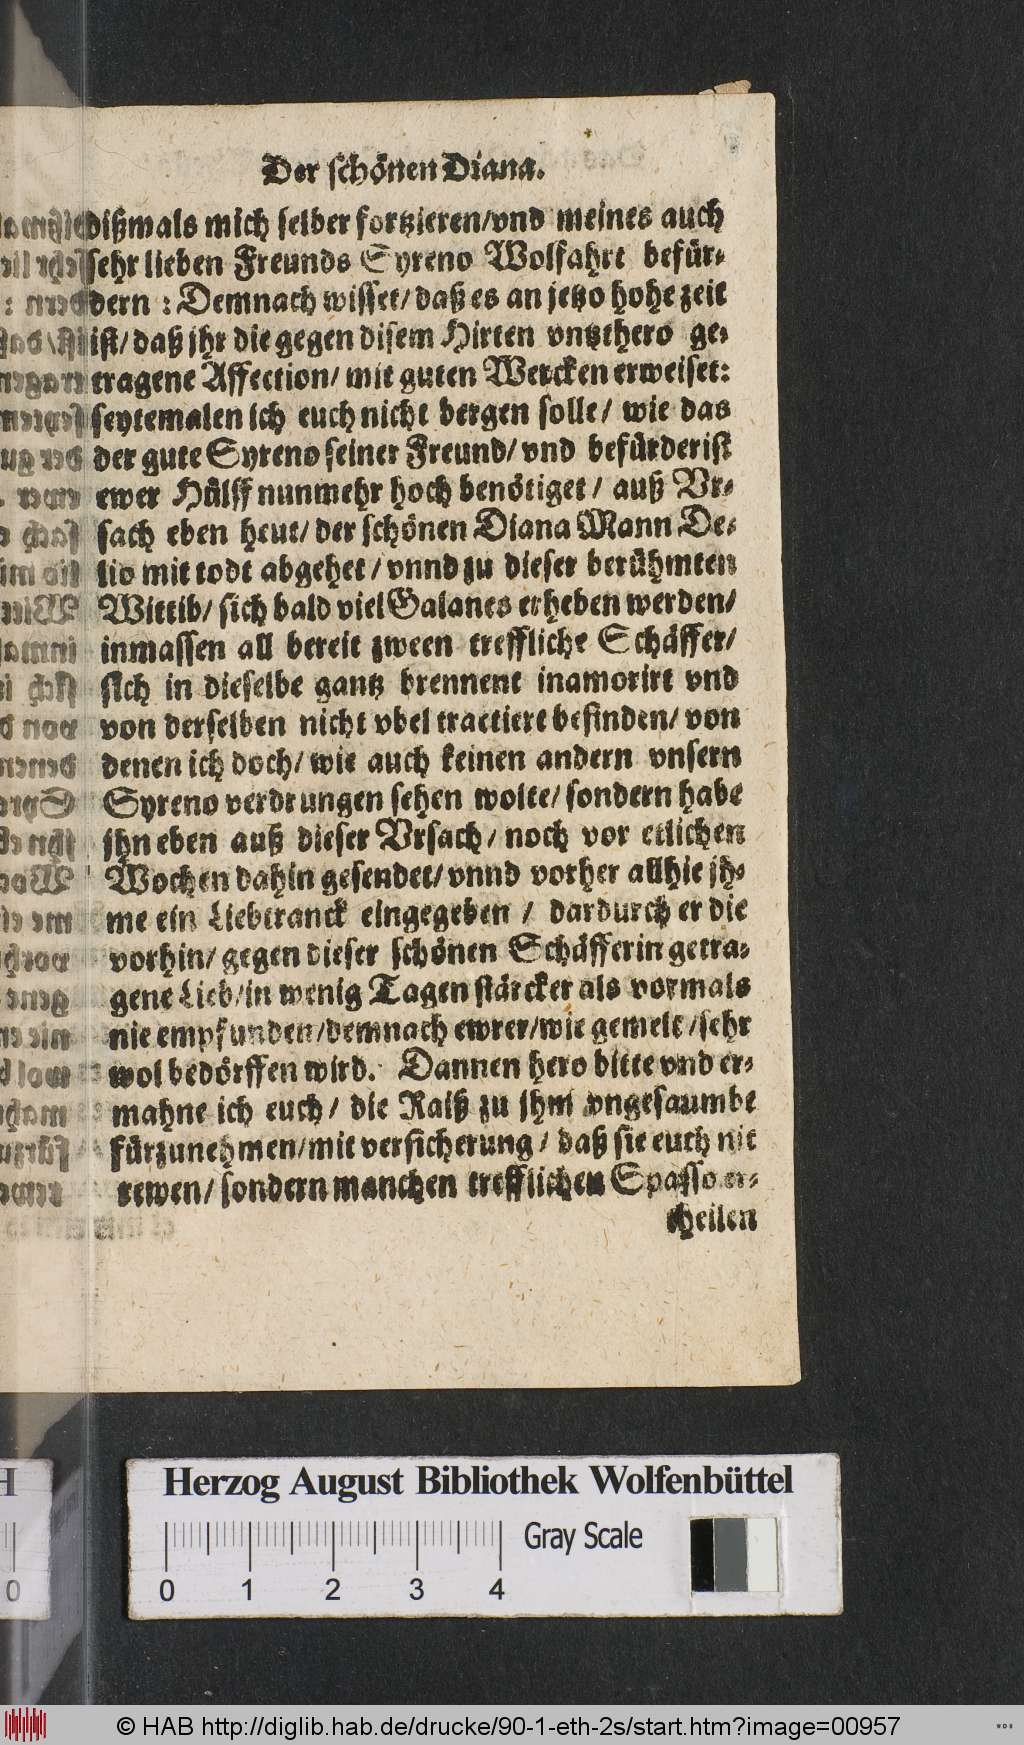 Der schönen Diana.
dißmals mich selber fortzieren/vnd meines auch
sehr lieben Freunds Syreno Wolfahrt befür-
dern : Demnach wisset/ daß es an jetzo hohe zeit
ist/ daß jhr die gegen disem Hirten vntzthero ge-
tragene Affection/ mit guten Wercken erweiset:
seytemalen ich euch nicht bergen solle/ wie das
der gute Syreno seiner Freund/ vnd befürderist
ewer Hülff nunmehr hoch benötiget/ auß Vr-
sach eben heut/ der schönen Diana Mann De-
lio mit todt abgehet/ vnnd zu dieser berühmten
Wittib/ sich bald viel Galanes erheben werden/
inmassen all bereit zween treffliche Schäffer/
sich in dieselbe gantz brennent inamorirt vnd
von derselben nicht vbel tractiert befinden/ von
denen ich doch/ wie auch keinen andern vnsern
Syreno verdrungen sehen wolte/ sondern habe
jhn eben auß dieser Vrsach/ noch vor etlichen
Wochen dahin gesendet/ vnnd vorher allhie jh-
me ein Liebtranck eingegeben / dardurch er die
vorhin/ gegen dieser schönen Schäfferin getra-
gene Lieb/in wenig Tagen stärcker als vormals
nie empfunden/demnach ewrer/wie gemelt/sehr
wol bedörffen wird. Dannen hero bitte vnd er-
mahne ich euch/ die Raiß zu jhm vngesaumbt
fürzunehmen/mit versicherung/ daß sie euch nit
rewen/ sondern manchen trefflichen Spasso er-
theilen
Herzog August Bibliothek Wolfenbüttel
Gray Scale
0 1 2 3 4
© HAB http://diglib.hab.de/drucke/90-1-eth-2s/start.htm?image=00957